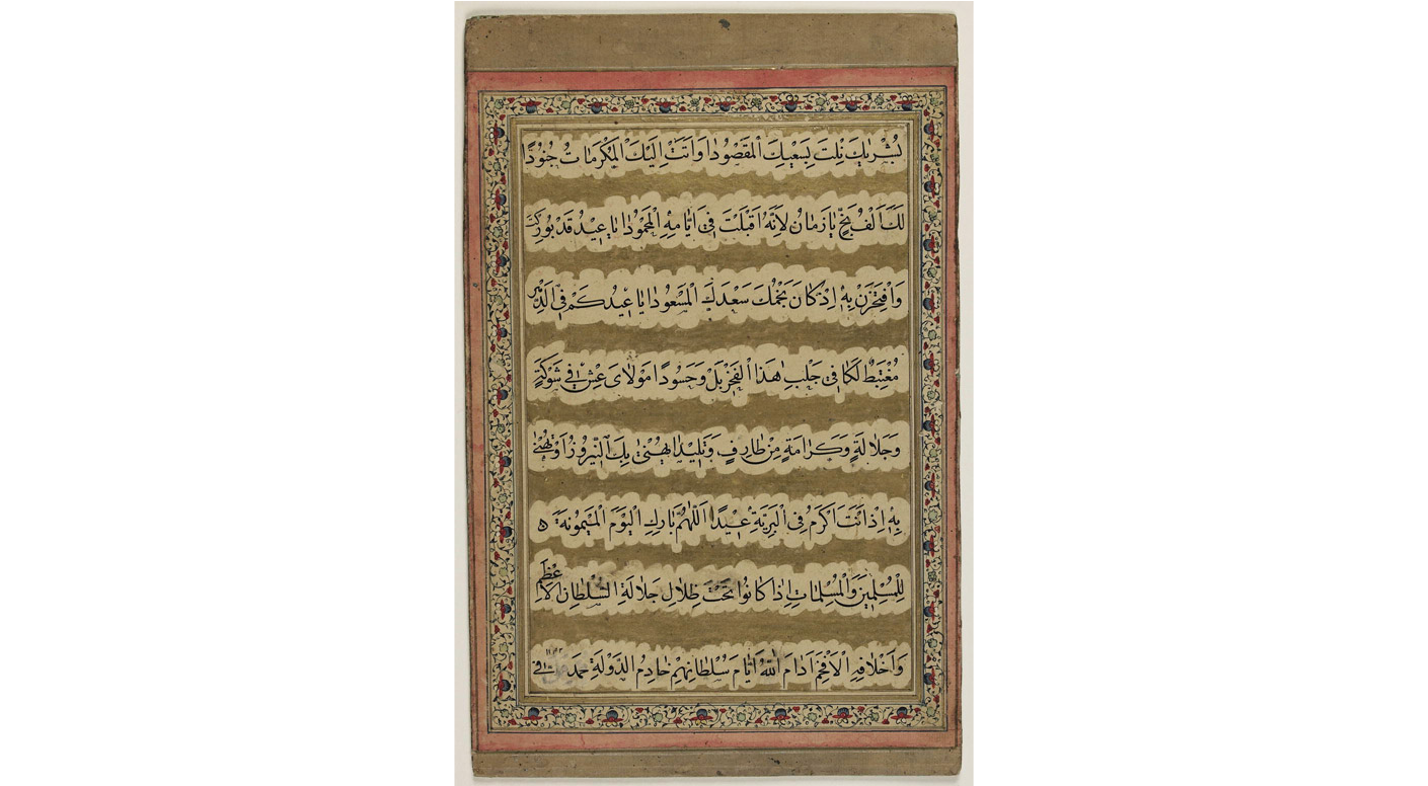 بُشْرىٰكَ نِلْتَ بِسَعْيِكَ الْمَقْصُودٰا وَاَتَتْ اِلَيْكَ الْمَكْرَمٰاتُ جُنُوْدًا
لَكَ اَلْفُ بَخٍّ يٰا زَمٰانُ لِاَنَّهُ اَقْبَلْتَ فِىْ اَيّٰامِهِ الْمَحْمُوْدٰا يٰا عِيْدُ قَدْ بُوْرِكْتَ
وَافْتَخِرَنْ بِهِ اِذْ كٰانَ نَجْمُكَ سَعْدَكَ الْمَسْعُوْدٰا يٰا عِيْدُ كَمْ فِى الدَّهْرِ
مُغْتَبِطٌ لَكٰا فِىْ جَلْبِ هٰذَا الْفَخْرِ بَلْ وَحَسُوْدًا مَوْلٰاىَ عِشْ فِىْ شَوْكَةٍ
وَجَلٰالَةٍ وَكَرٰامَةٍ مِنْ طٰارِفٍ وَتَلِيْدٰا يُهْنٰى بِكَ النَّيْرُوْزُ اَوْ تُهْنٰى
بِهِ اِذْ اَنْتَ اَكْرَمُ فِى الْبَرِيَّةِ عِيْدًا اَللّٰهُمَّ بٰارِكِ الْيَوْمَ الْمَيْمُوْنَةَ ه
لِلْمُسْلِمِيْنَ وَالْمُسْلِمٰاتِ اِذٰا كٰانُوْا تَحْتَ ظِلٰالِ جَلٰالَةِ السُّلْطٰانِ الْاَعْظَمِ
وَاَخْلٰافِهِ الْاَفْخَمِ اَدٰامَ اللّٰهُ اَيّٰامَ سُلْطٰانِهِمْ خٰادِمُ الدَّوْلَةِ